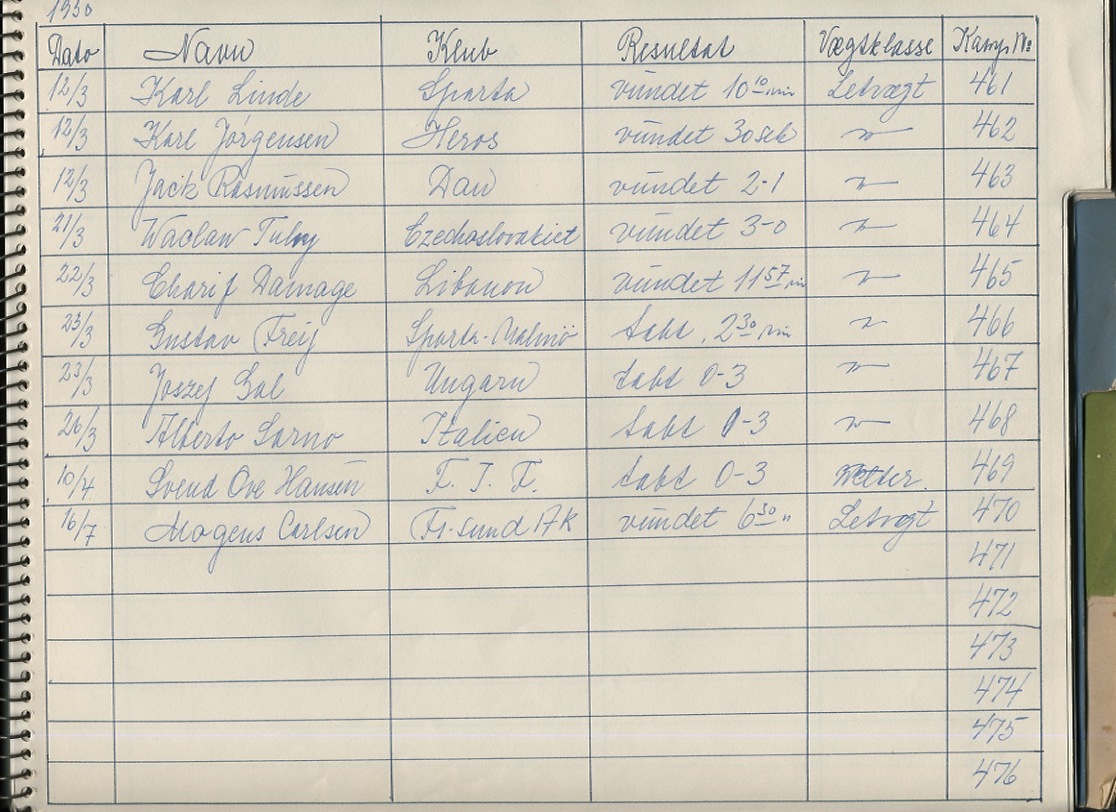 1950
Dato Navn Klub Resultat Vægtklasse Kamp Nr.
12/3 Karl Linde Sparta vundet 10 10 min Letvægt 461
12/3 Karl Jörgensen Heros vundet 30 sek 〃 462
12/3 Jack Rasmussen Dan vundet 2-1 〃 463
21/3 Waclaw Czechoslovakiet vundet 3-0 〃 464
22/3 Charif Damage Libanon vundet 11 57 min 〃 465
23/3 Gustav Freij Sparta-Malmö tabt 2 30 min 〃 466
23/3 Joszef Gal Ungarn tabt 0-3 〃 467
26/3 Alberto Sarno Italien tabt 0-3 〃 468
10/4. Svend Ove Hansen F. I. F. tabt 0-3 Welter. 469
16/7 Mogens Carlsen Fr.sund AK vundet 6 30 〃 Letvægt 470
471
472
473
474
475
476